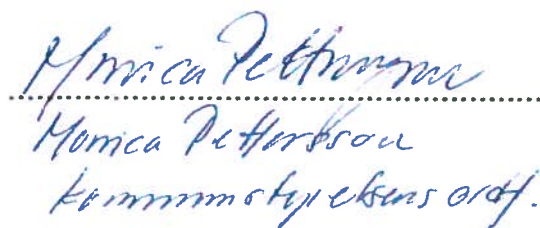 Monica Pettersson
Monica Pettersson
kommunstyrelsens ordf.